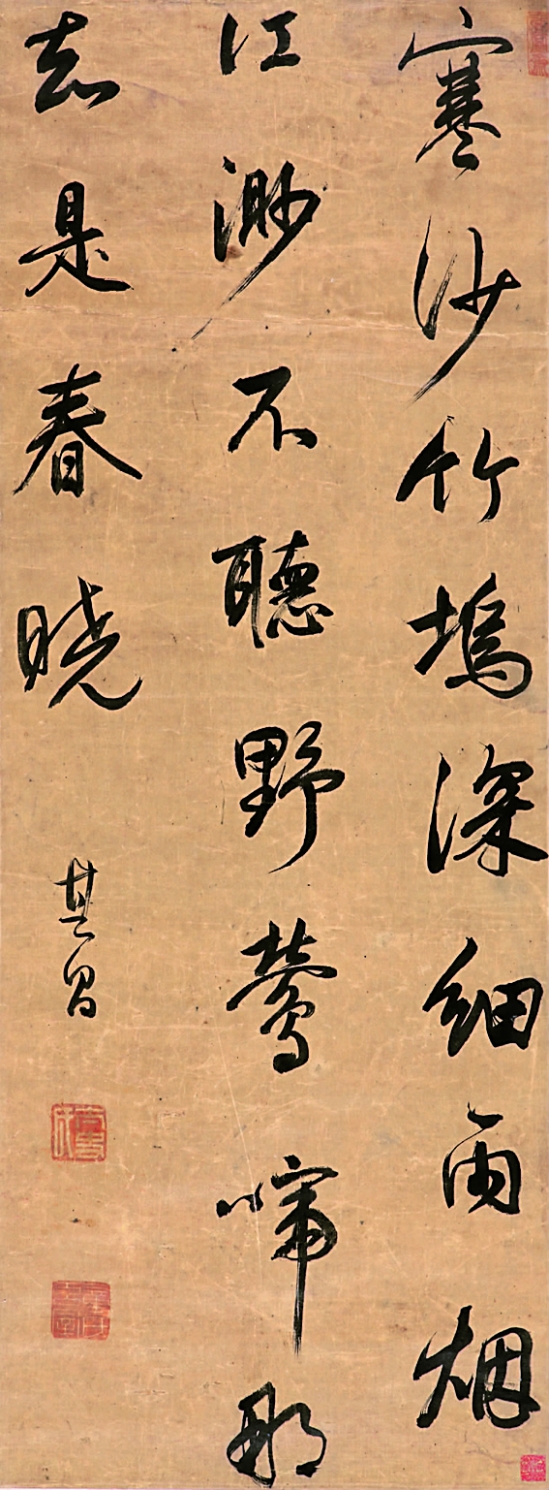 寒沙竹塢深細雨烟
江渺不聽野鶯啼那
知是春曉
其昌